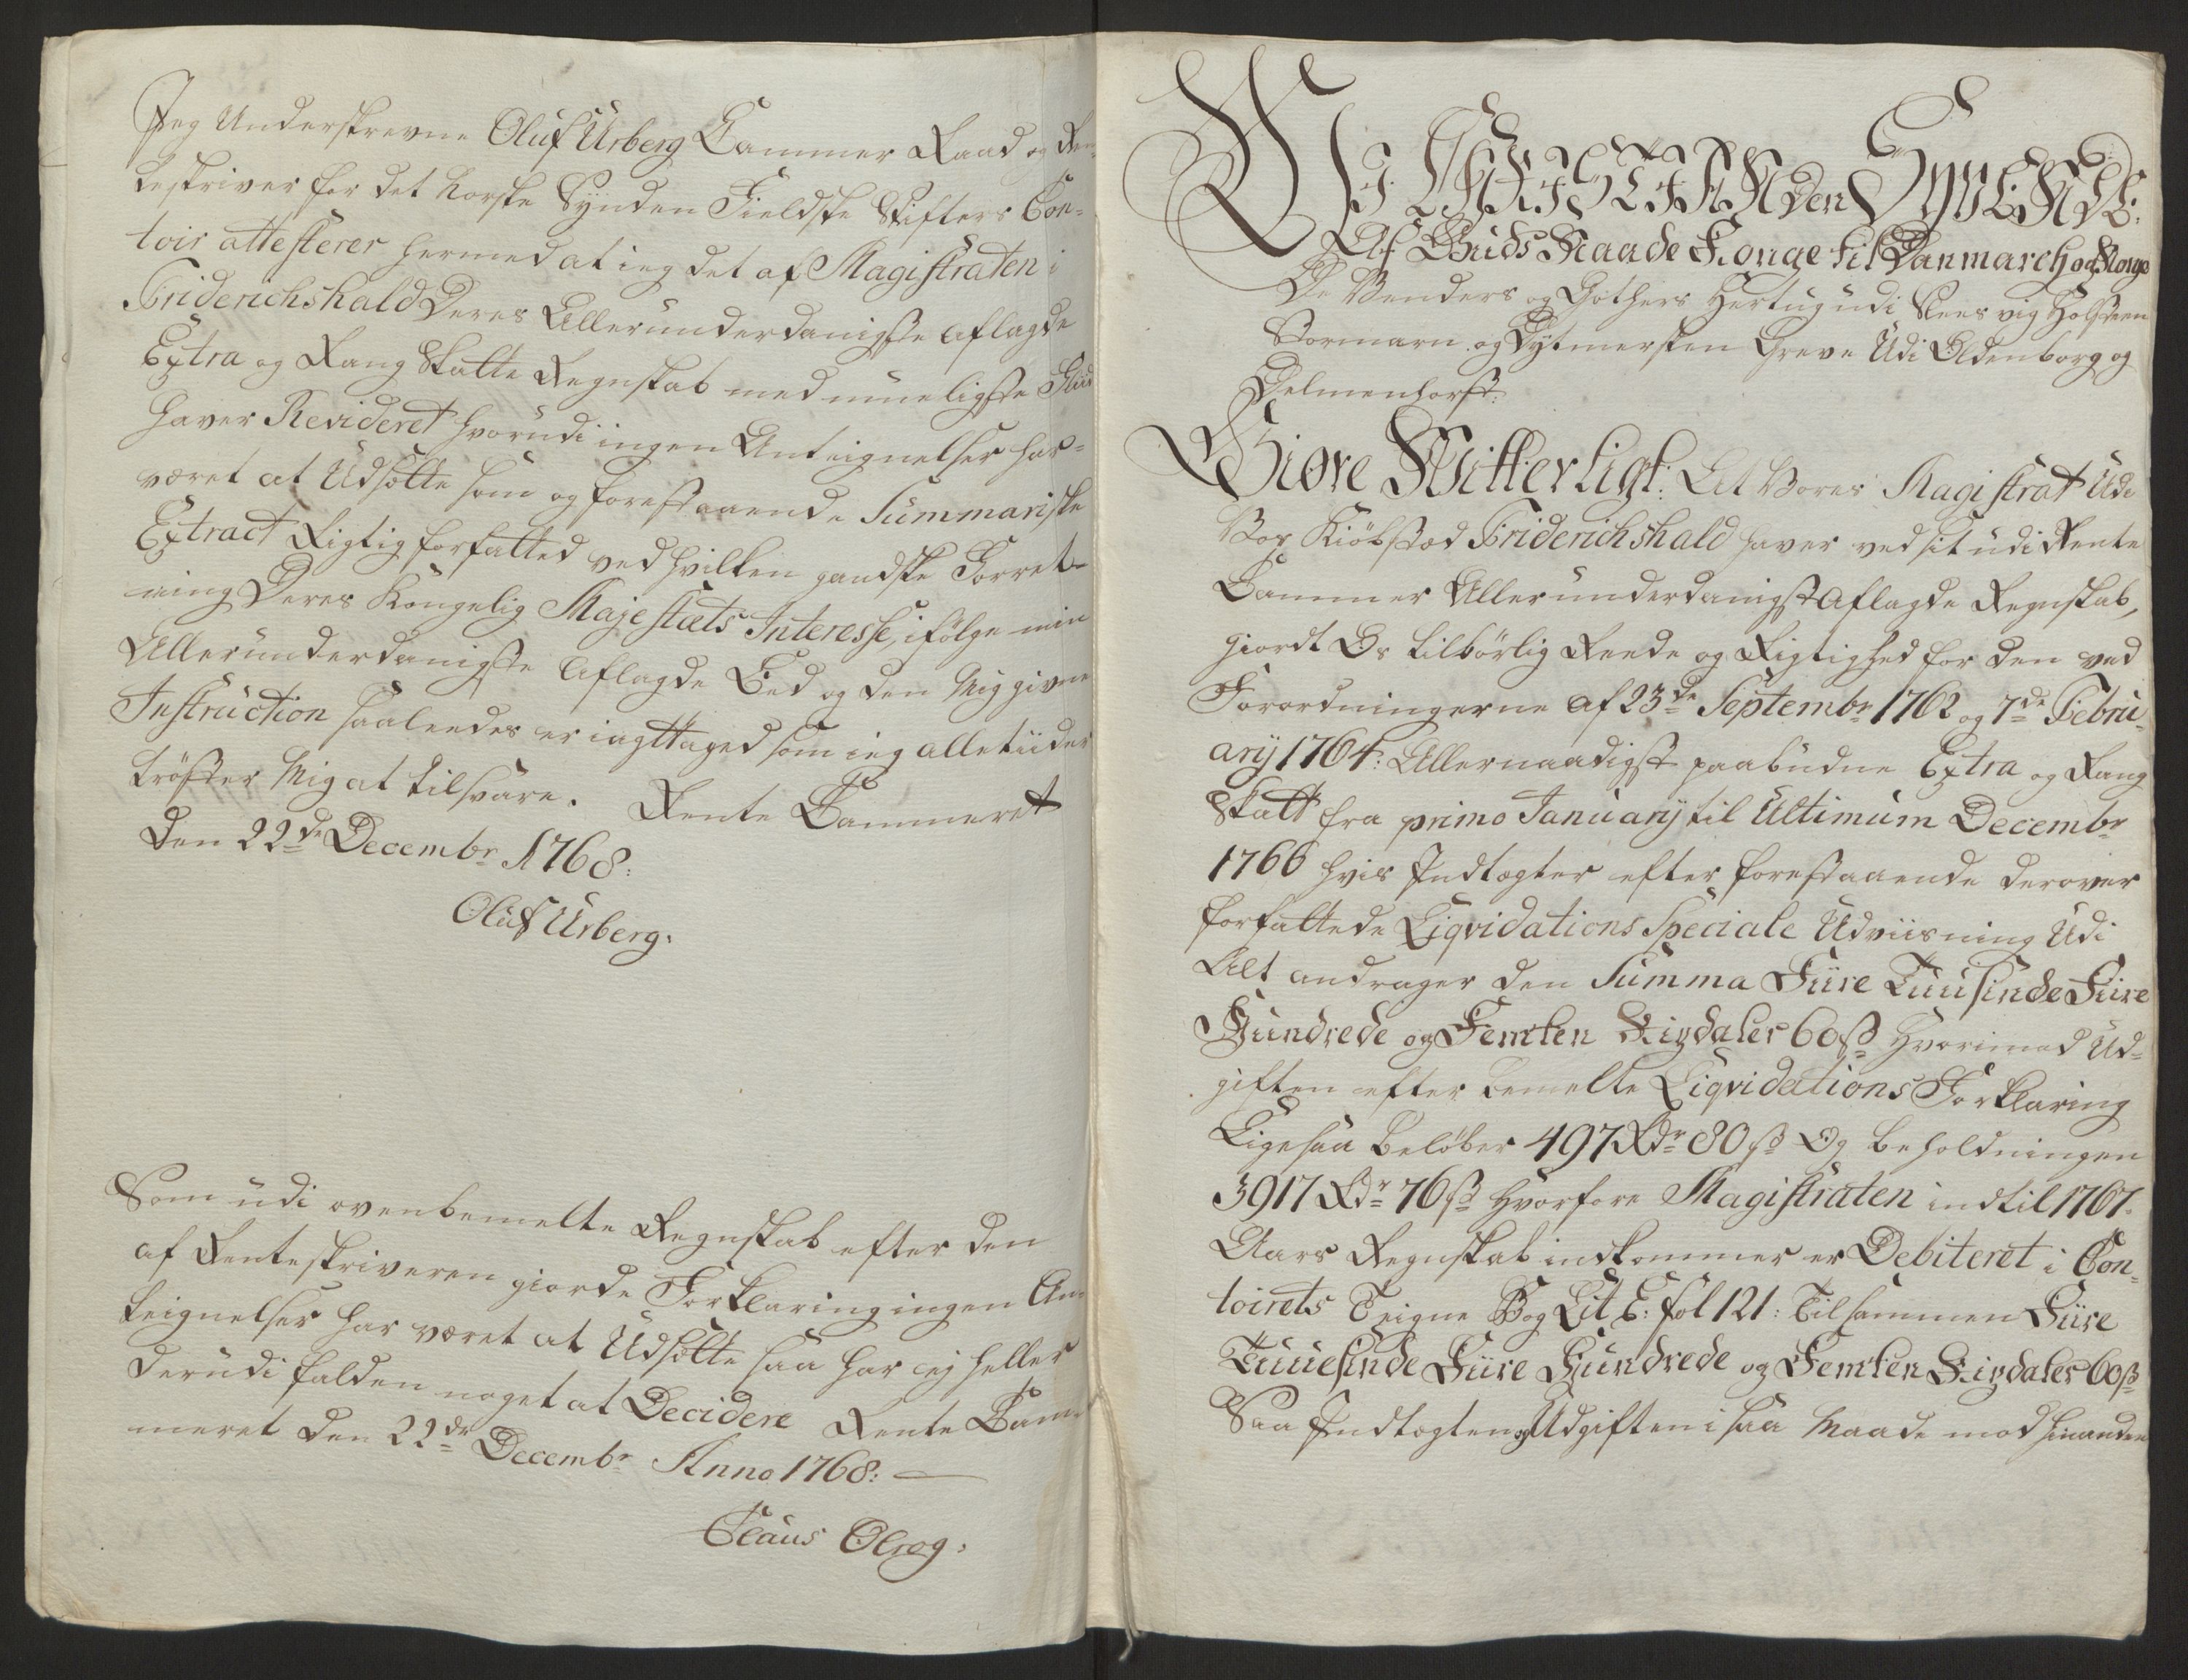 Jeg Underskrevne Oluf Urberg Cammer Raad og Ren-
teskriver for det Norske Synden Fieldske Stifters Con-
toir attesterer hermed at ieg det af Magistraten i
Friderichshald Deres Allerunderdanigste aflagde
Extra og Rang Skatte Regnskab med mueligste Fliid
haver Revideret hvorudi ingen Anteignelser har
været at Udsætte som og forestaaende Summariske
Extract Rigtig forfatted ved hvilken gandske Forret-
ning Deres Kongelig Majestæts Interesse, ifølge min
Allerunderdanigste Aflagde Eed og den Mig givne
Instruction saaleedes er iagttaged som ieg alletiider
trøster Mig at tilsvare. Rente Cammeret
den 22de Decembr 1768:
Oluf Urberg.
Som udi ovenbemelte Regnskab efter den
af Renteskriveren giorde Forklaring ingen An-
teignelser har været at Udsætte saa har ej heller
derudi falden noget at Decidere Rente Cam-
meret den 22de Decembr Anno 1768:
Claus Olrog.
Vj CHRISTIAN den SYVENDE:
Af Guds Naade Konge til Danmarch og Norge
De Venders og Gothers Hertug udi Slesvig Holsteen
Stormarn og Dytmersken Greve Udi Oldenborg og
Delmenhorst:
Giøre Witterligt: At Vores Magistrat Udi
Vor Kiöbstæd Friderichshald haver ved sit udi Rente
Cammer Allerunderdanigst Aflagde Regnskab,
giordt Os tilbørlig Reede og Rigtighed for den ved
Forordningerne af 23de Septembr 1762 og 7de Febru-
arij 1764: Allernaadigst paabudne Extra og Rang
Skatt fra primo Januarij til Ultimum Decembr
1766 hvis Indtægter efter forestaaende derover
forfattede Liqvidations Speciale Udviisning Udi
Alt andrager den Summa Fiire Tuusinde Fiire
Hundrede og Femten Rixdaler 60 ß Hvorimod Ud-
giften efter bemelte Liqvidations Forklaring
Ligesaa beløber 497 Rdr 80 ß Og beholdningen
3917 Rdr 76 ß Hvorfore Magistraten indtil 1767
Aars Regnskab indkommer er Debiteret i Con-
toirets Teigne Bog Lit E: fol 121: Tilsammen Fiire
Tuuesinde Fiire Hundrede og Femten Rixdaler 60 ß
Saa Indtægten og Udgiften i saa Maade mod hinanden